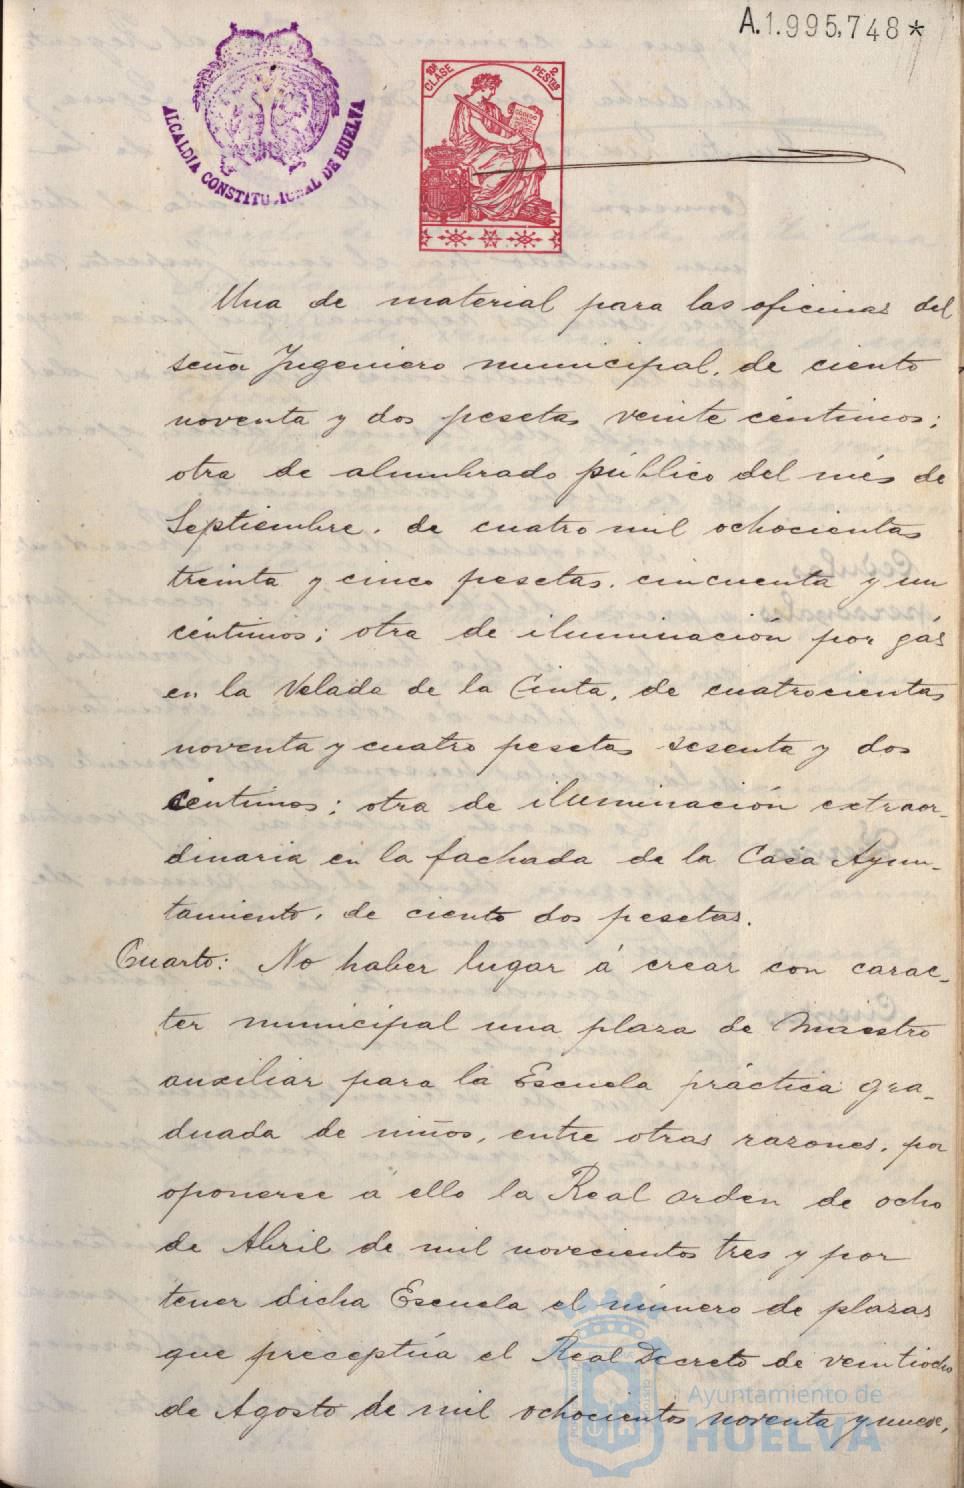 A.1.995,748*
ALCALDIA CONSTITUCIONAL DE HUELVA
10ª CLASE 2 PESTAS
Una de material para las oficinas del
señor Ingeniero municipal, de ciento
noventa y dos pesetas veinte céntimos;
otra de alumbrado público del més de
Septiembre, de cuatro mil ochocientas
treinta y cinco pesetas, cincuenta y un
céntimos; otra de iluminación por gás
en la Velada de la Cinta, de cuatrocientas
noventa y cuatro pesetas sesenta y dos
céntimos; otra de iluminación extraor-
dinaria en la fachada de la Casa Ayun-
tamiento, de ciento dos pesetas.
Cuarto: No haber lugar á crear con carac-
ter municipal una plaza de Maestro
auxiliar para la Escuela práctica gra-
duada de niños, entre otras razones, por
oponerse á ello la Real orden de ocho
de Abril de mil novecientos tres y por
tener dicha Escuela el número de plazas
que preceptúa el Real Decreto de veintiocho
de Agosto de mil ochocientos noventa y nueve,
Ayuntamiento de
HUELVA